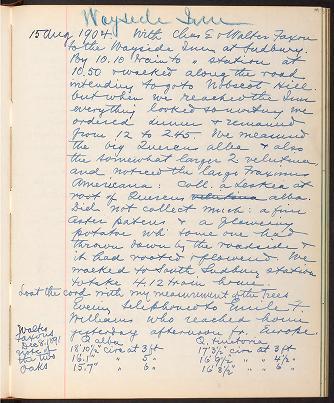 Wayside Inn
15 Aug 1904 With Chas E & Walter Faxon
to the Wayside Inn at Sudbury.
By 10.10 train to " station at
10.50 & walked along the road
intending to go to Nobscot Hill.
but when we reached the Inn
everything looked so inviting we
ordered dinner & remained
from 12 to 2.45. We measured
the big Quercus alba & also
the somewhat larger Q velutina
and noticed the large Fraxinus
Americana: Coll. a Leskea at
root of Quercus velutina alba.
Did not collect much: a fine
Aster patens & a flowering
potato wh. some one had
thrown down by the roadside &
it had rooted & flowered. We
walked to South Sudbury station
to take 4.12 train home.
Lost the card with my measurement of the Trees
Even'g telephoned to Emile F.
Williams who reached home
yesterday afternoon fr. Europe.
Walter
Faxon's
Dec 5, 1891
note of
the two
oaks
Q. alba Q. tinctoria
18'10½" circ at 3 ft 17'3½" circ at 3 ft
16.1" " 5 " 16'9½ " " 4½ "
15.7" " 6 " 16'3½ " " 6 "